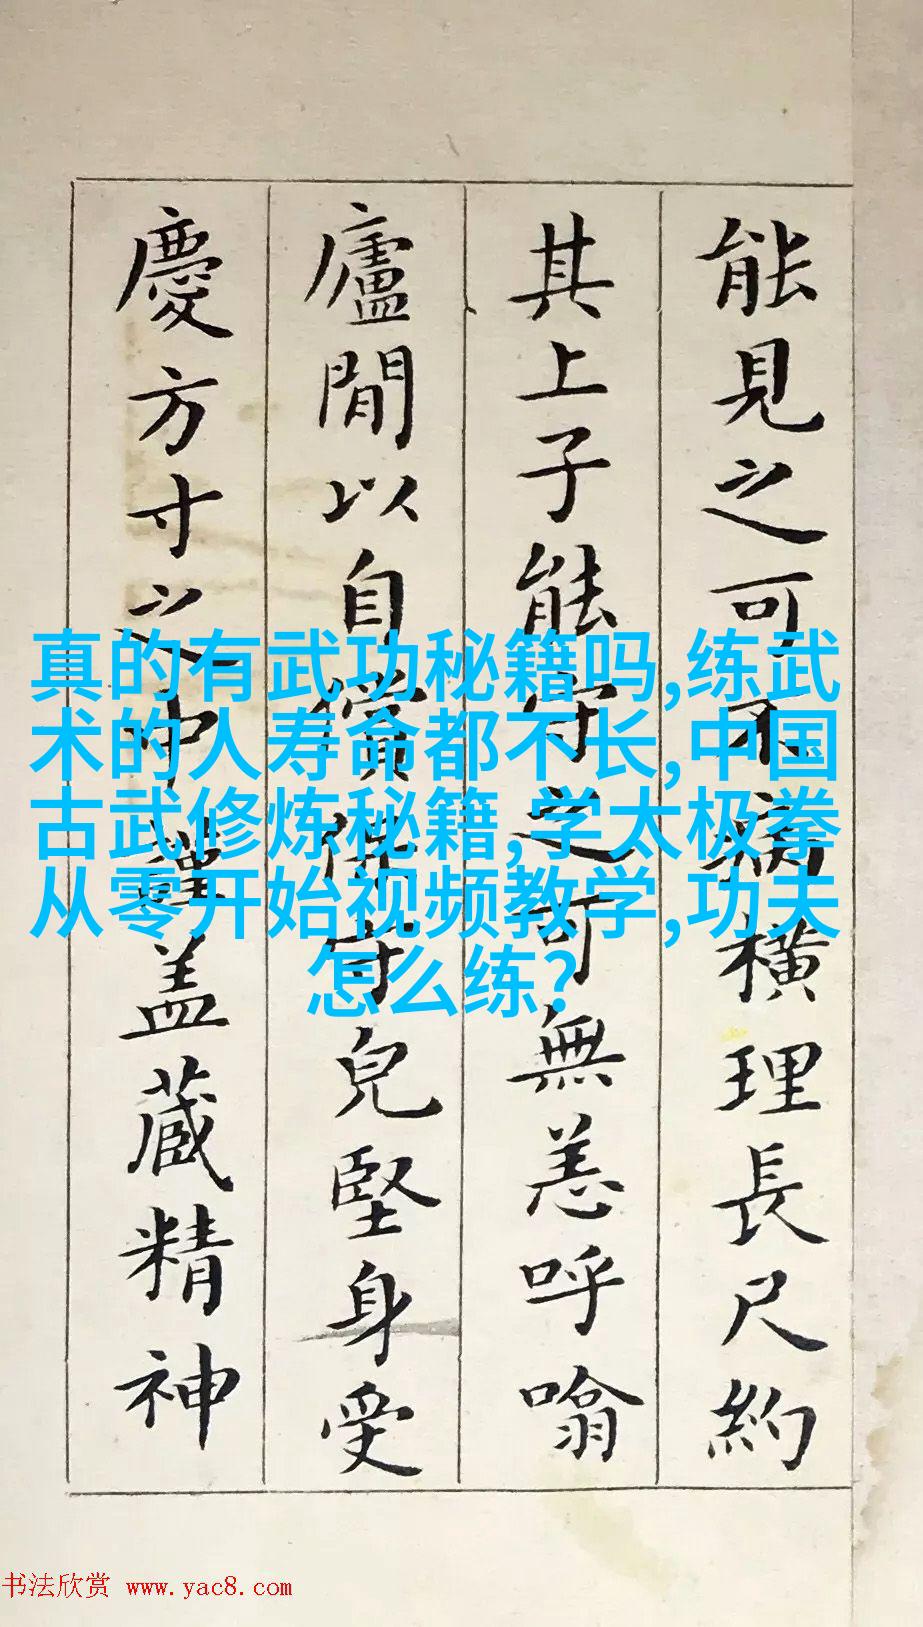 能見之可不病橫理長尺約
其上子能守之可無恙呼噏
廬閒以自償保守兒堅身受
慶方寸之中謹盖藏精神
真的有武功秘籍吗,练武
术的人寿命都不长,中国
古武修炼秘籍,学太极拳
从零开始视频教学,功夫
怎么练?
书法欣赏 www.yac8.com